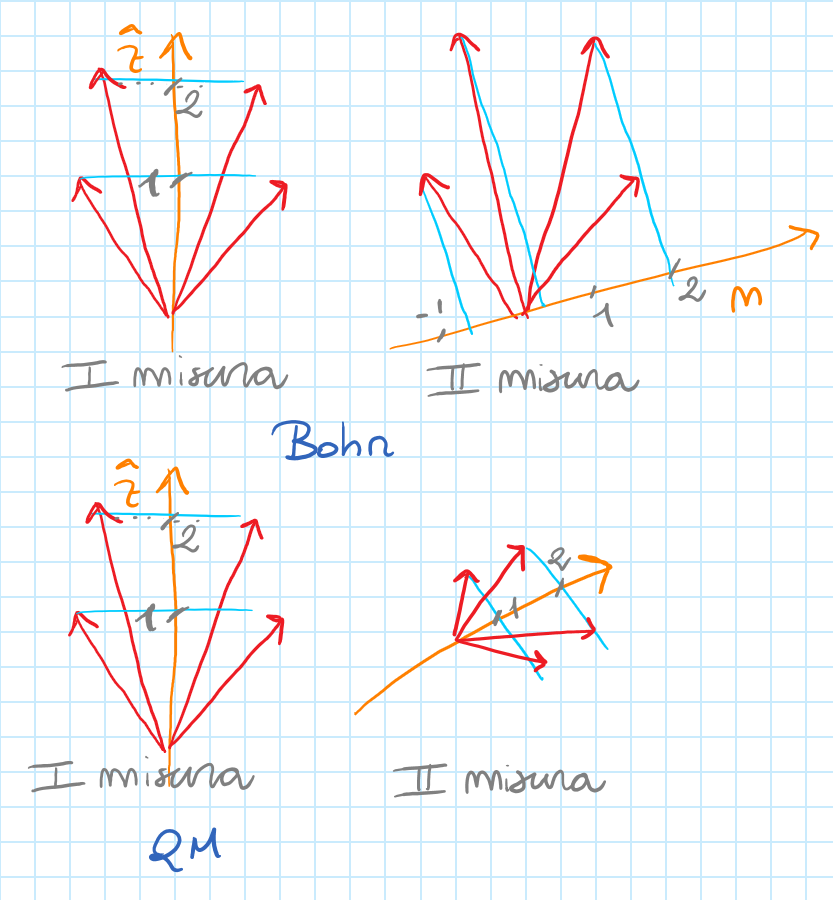 ẑ
2
1
I misura
-1
1
2
m
II misura
Bohr
ẑ
2
1
I misura
1
2
II misura
QM